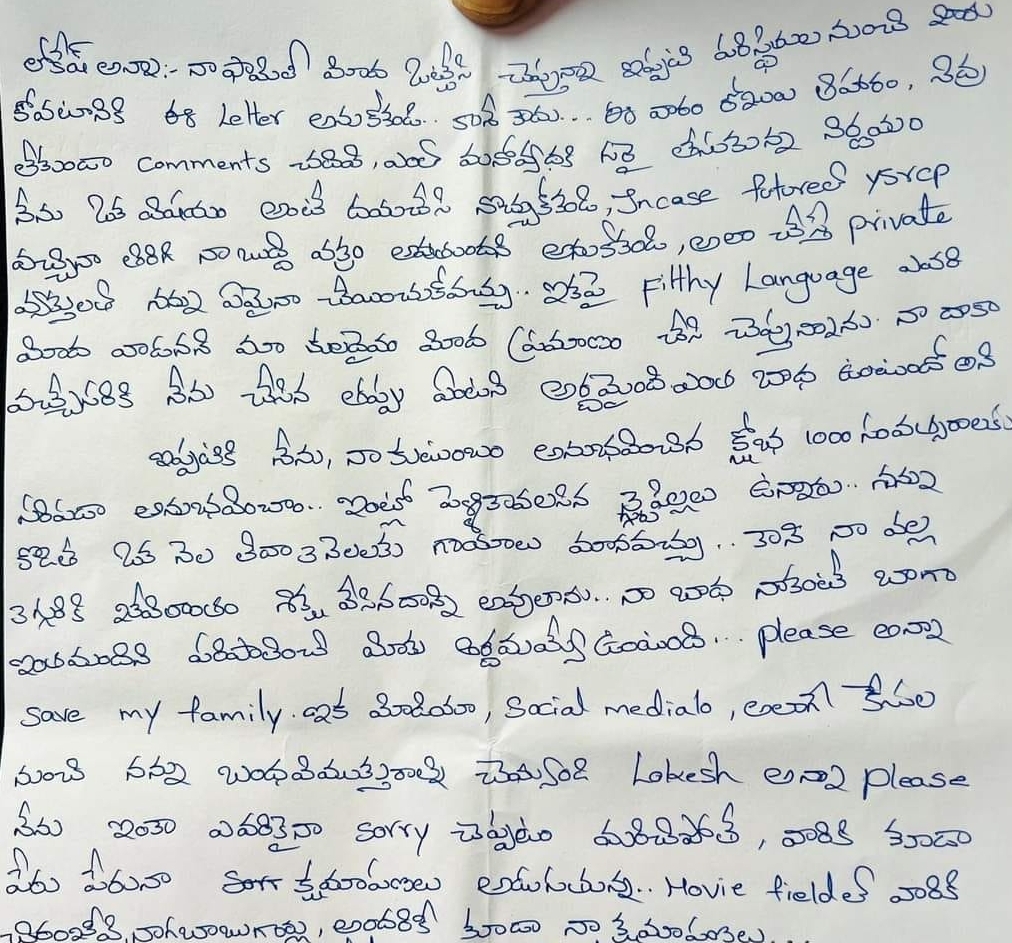 లోకేష్ అన్నా:- నా ఫ్యామిలీ మీద ఒట్టేసి చెప్తున్నా ఇప్పటి పరిస్థితుల నుంచి
కోవటానికి ఈ Letter అనుకోకండి.. కానే కాదు... ఈ వారం రోజులు నిద్ర
లేకుండా comments చదివి, ఎంతో మనోవ్యధకి గురై తీసుకున్న నిర్ణయం
నేను ఒక విషయం అంటే దయచేసి నొచ్చుకోకండి, Incase futureలో ysrcp
వచ్చినా తిరిగి నా బుద్ధి వక్రం అవుతుందని అనుకోకండి, అలా చేస్తే private
వ్యక్తులతో నన్ను ఏమైనా చేయించుకోవచ్చు.. ఇకపై Filthy Language ఎవరి
మీదా వాడనని మా కులదైవం మీద ప్రమాణం చేసి చెప్తున్నాను. నా దాకా
వచ్చేసరికి నేను చేసిన తప్పు ఏంటని అర్థమైంది ఎంత బాధ ఉంటుందో అని
ఇప్పటికి నేను, నా కుటుంబం అనుభవించిన క్షోభ 1000 సంవత్సరాలకు
సరిపడా అనుభవించాం.. ఇంట్లో పెళ్ళికావలసిన ఉన్నారు.. నన్ను
కొడితే ఒక నెల లేదా 3 నెలలకు గాయాలు మానవచ్చు.. కానీ నా వల్ల
3 గ్గురికి జీవితాంతం శిక్ష వేసినదాన్ని అవుతాను.. నా బాధ నాకంటే బాగా
ఇంతమందిని పరిపాలించే మీకు అర్థమయ్యే ఉంటుంది... please అన్నా
save my family. ఇక మీడియా, social mediaలo, అలాగే కేసుల
నుంచి నన్ను బంధవిముక్తురాల్ని చెయ్యండి Lokesh అన్నా please
నేను ఇంకా ఎవరికైనా sorry చెప్పటం మరిచిపోతే, వారికి కూడా
పేరు పేరునా క్షమాపణలు అడుగుతున్నా.. Movie fieldలో వారికి
చిరంజీవి, నాగబాబుగార్లు, అందరికీ కూడా నా క్షమాపణలు...